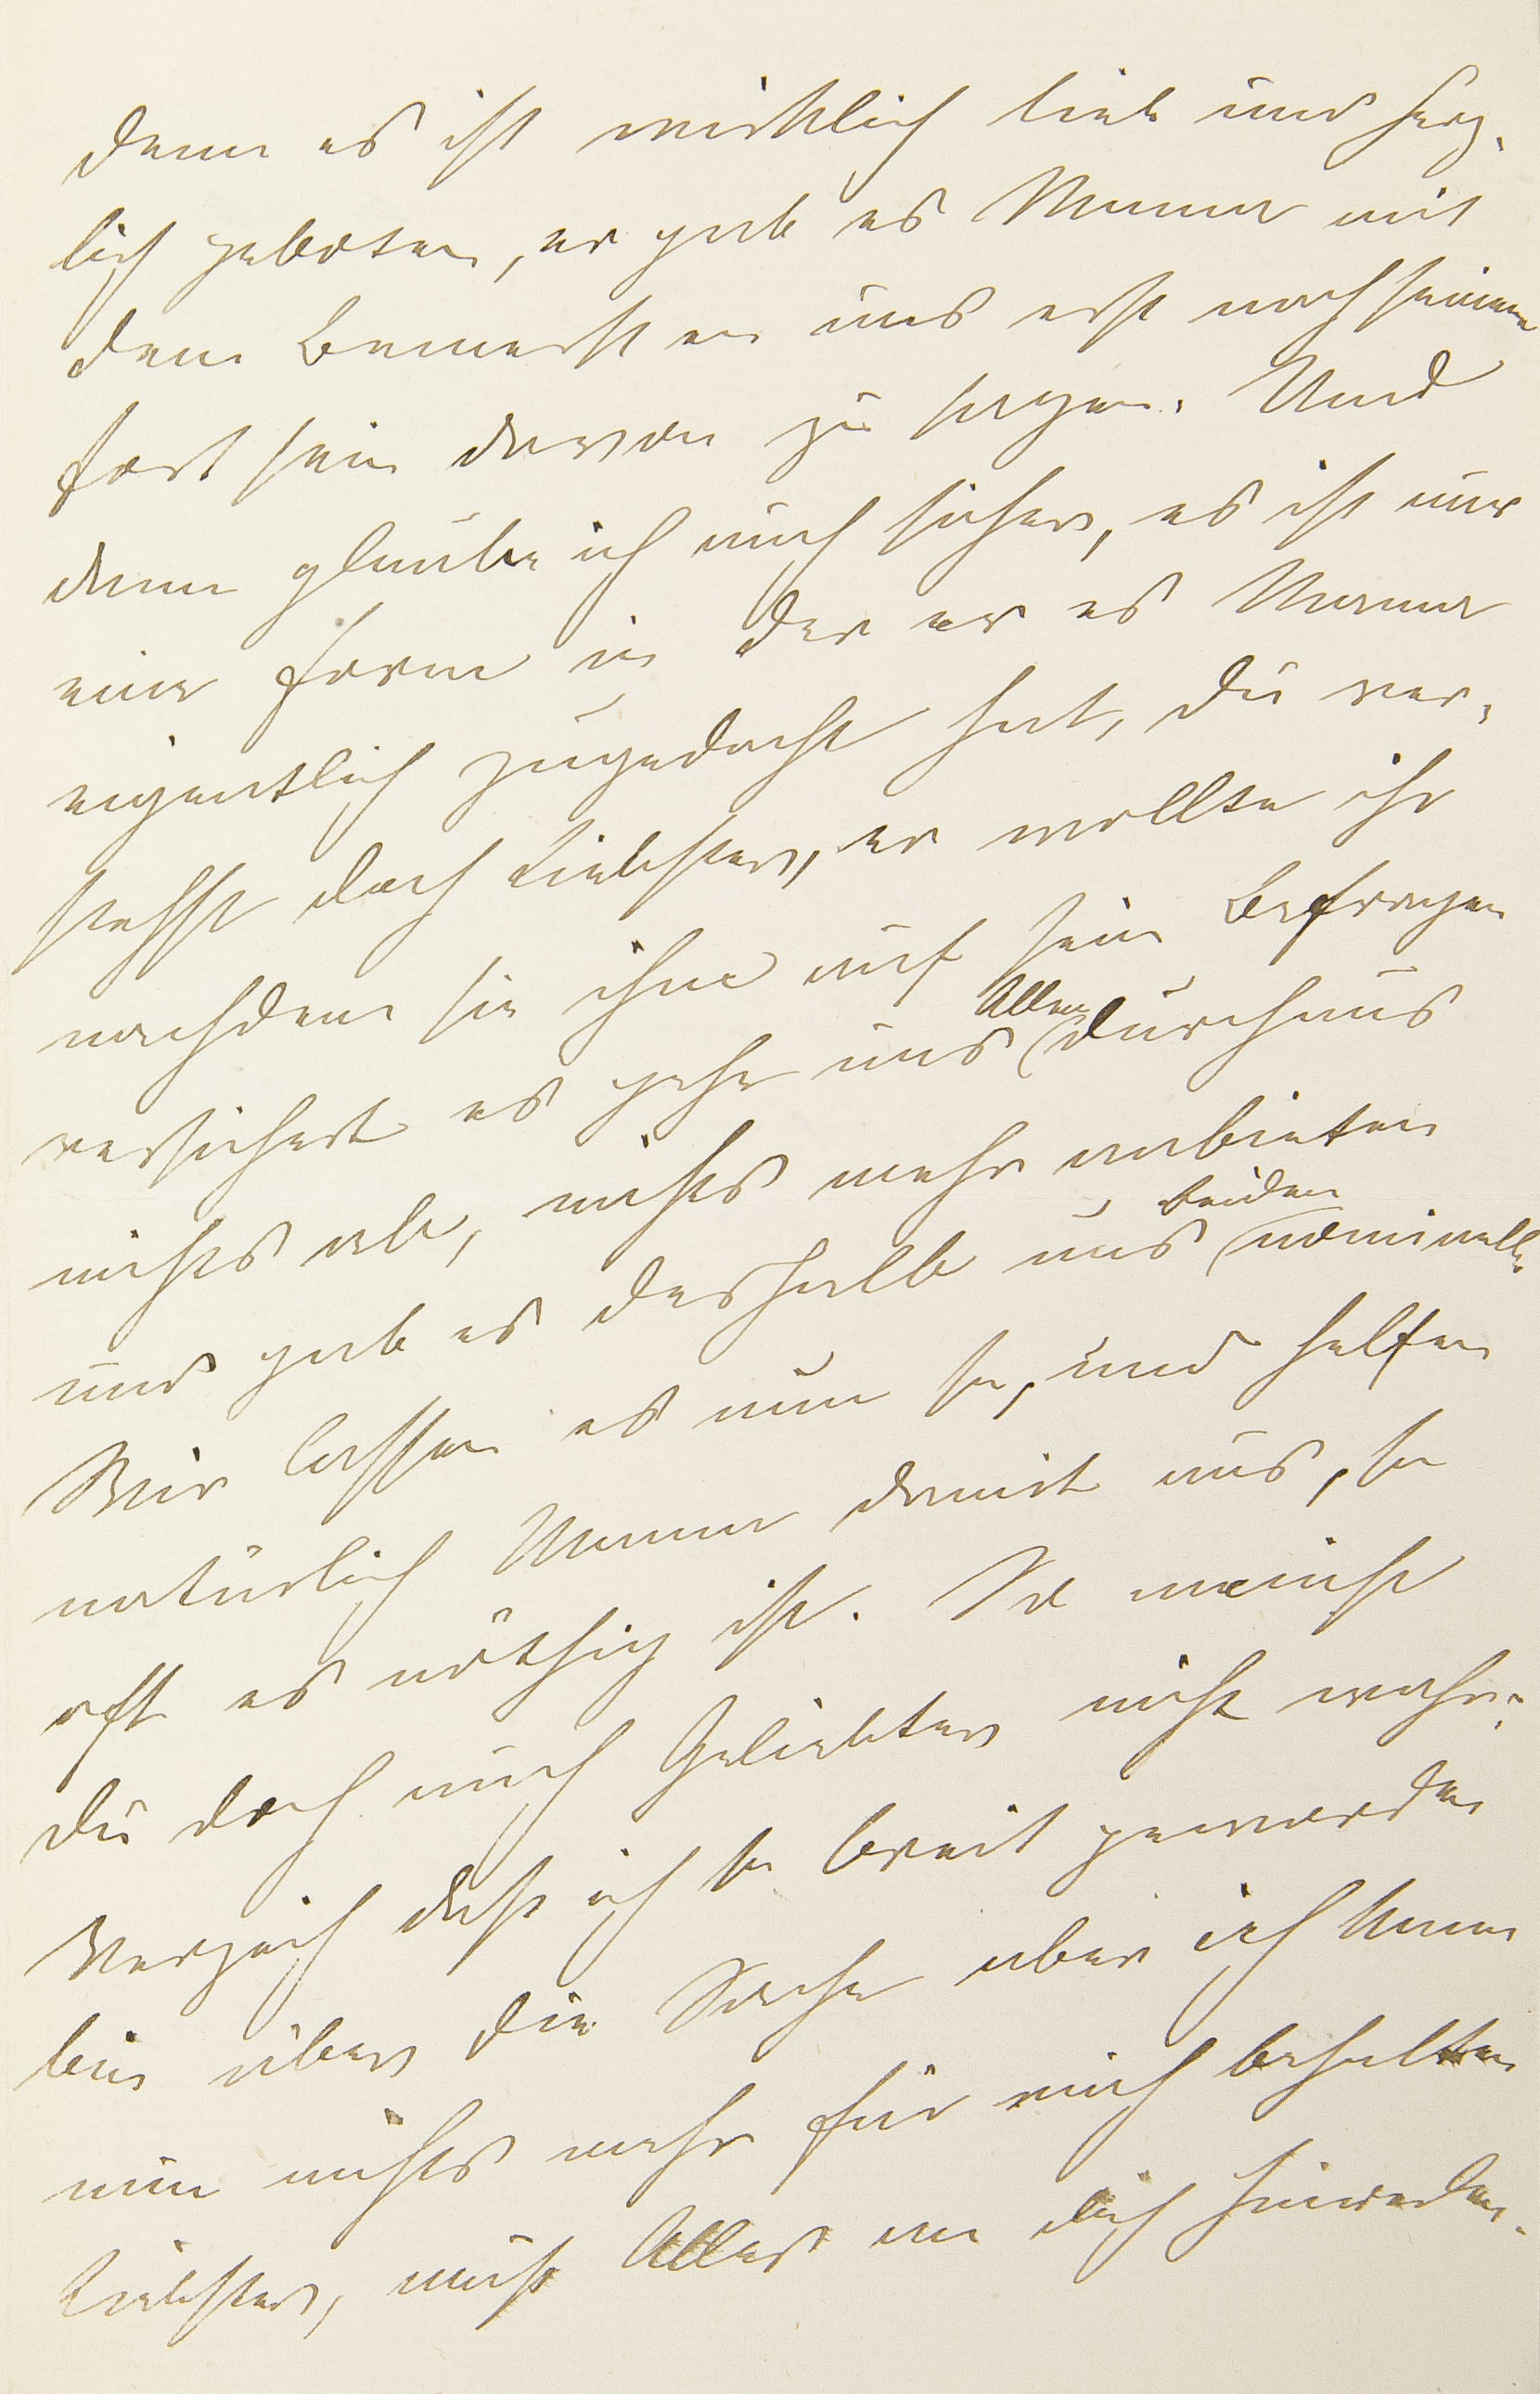 denn es ist wirklich lieb und herz-
lich geboten, er gab es Mama mit
dem Bemerken uns erst nach seinem
fort sein davon zu sagen. Und
dann glaube ich auch sicher, es ist nur
eine Form in der er es Mama
eigentlich zugedacht hat, du ver-
stehst doch Liebster, er wollte ihr
nachdem sie ihm auf sein Befragen
versichert es gehe uns Allen durchaus
nichts ab, nichts mehr anbieten
und gab es deshalb uns beiden nominell.
Wir lassen es nun so, und helfen
natürlich Mama damit aus, so
oft es nöthig ist. So meinst
du doch auch Geliebter nicht wahr?
Verzeih daß ich so breit geworden
bin über die Sache aber ich kann
nun nichts mehr für mich behalten
Liebster, muß Alles an dich hinreden.